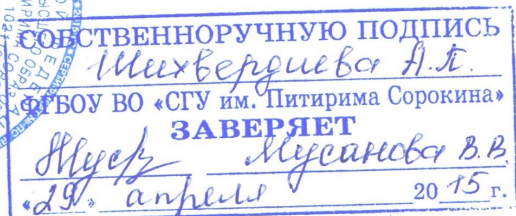 СОБСТВЕННОРУЧНУЮ ПОДПИСЬ
Шихвердиева А.П.
ФГБОУ ВО «СГУ им. Питирима Сорокина»
ЗАВЕРЯЕТ
Мусанова В.В.
«29» апреля 2015 г.